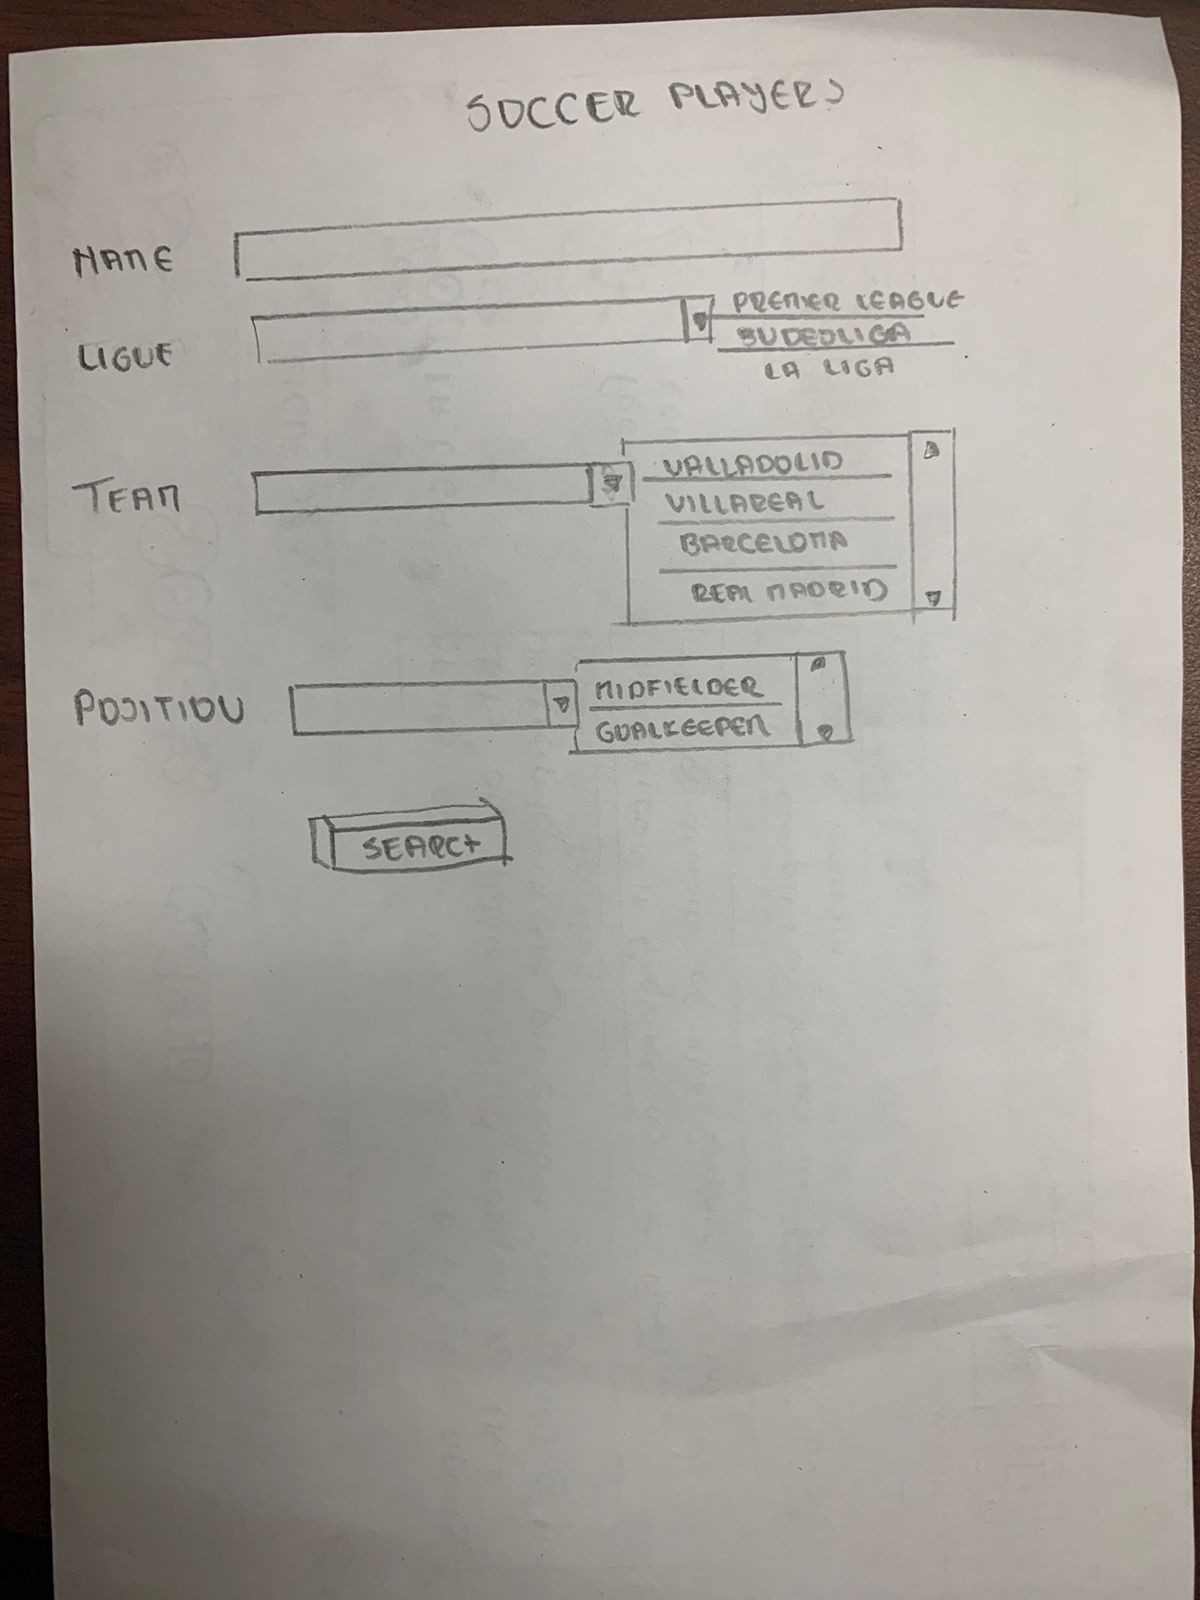 SOCCER PLAYERS
NAME
PREMIER LEAGUE
BUDEOLIGA
LIGUE
LA LIGA
VALLADOLID
TEAM
VILLAREAL
BARCELONA
REAL MADRID
POSITION
MIDFIELDER
GOALKEEPER
SEARCH